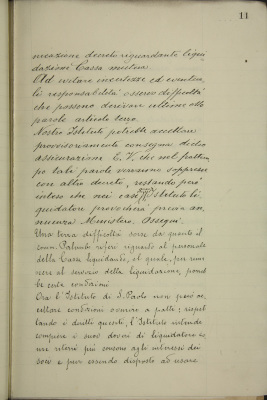 11
nicazione decreto riguardante liqui
dazioni Cassa
Ad evitare incertezze ed eventua
li responsabilità osservo difficoltà
che possono derivare ultime otto
parole articolo terzo.
Nostro Istituto potrebbe accettare
provvisoriamente consegna dietro
assicurazione E. V. che nel frattem
po tali parole verranno soppresse
con altro decreto, restando però
inteso che nei casi Istituto li
quidatore provvederà previa an
nuenza Ministero. Ossequi.
Una terza difficoltà sorse da quanto il
comm. Palumbo riferì riguardo al personale
della Cassa liquidanda, el quale, per rima
nere al servizio della liquidazione, pareb
be certe condizioni
Ora l'Istituto di S. Paolo non può ac
cettare condizioni ovvero a patti: rispet
tando i diritti quesiti, l'Istituto intende
compiere i suoi doveri di liquidatore co
me riterrà più consono agli interessi dei
soci e pur essendo disposto ad usare